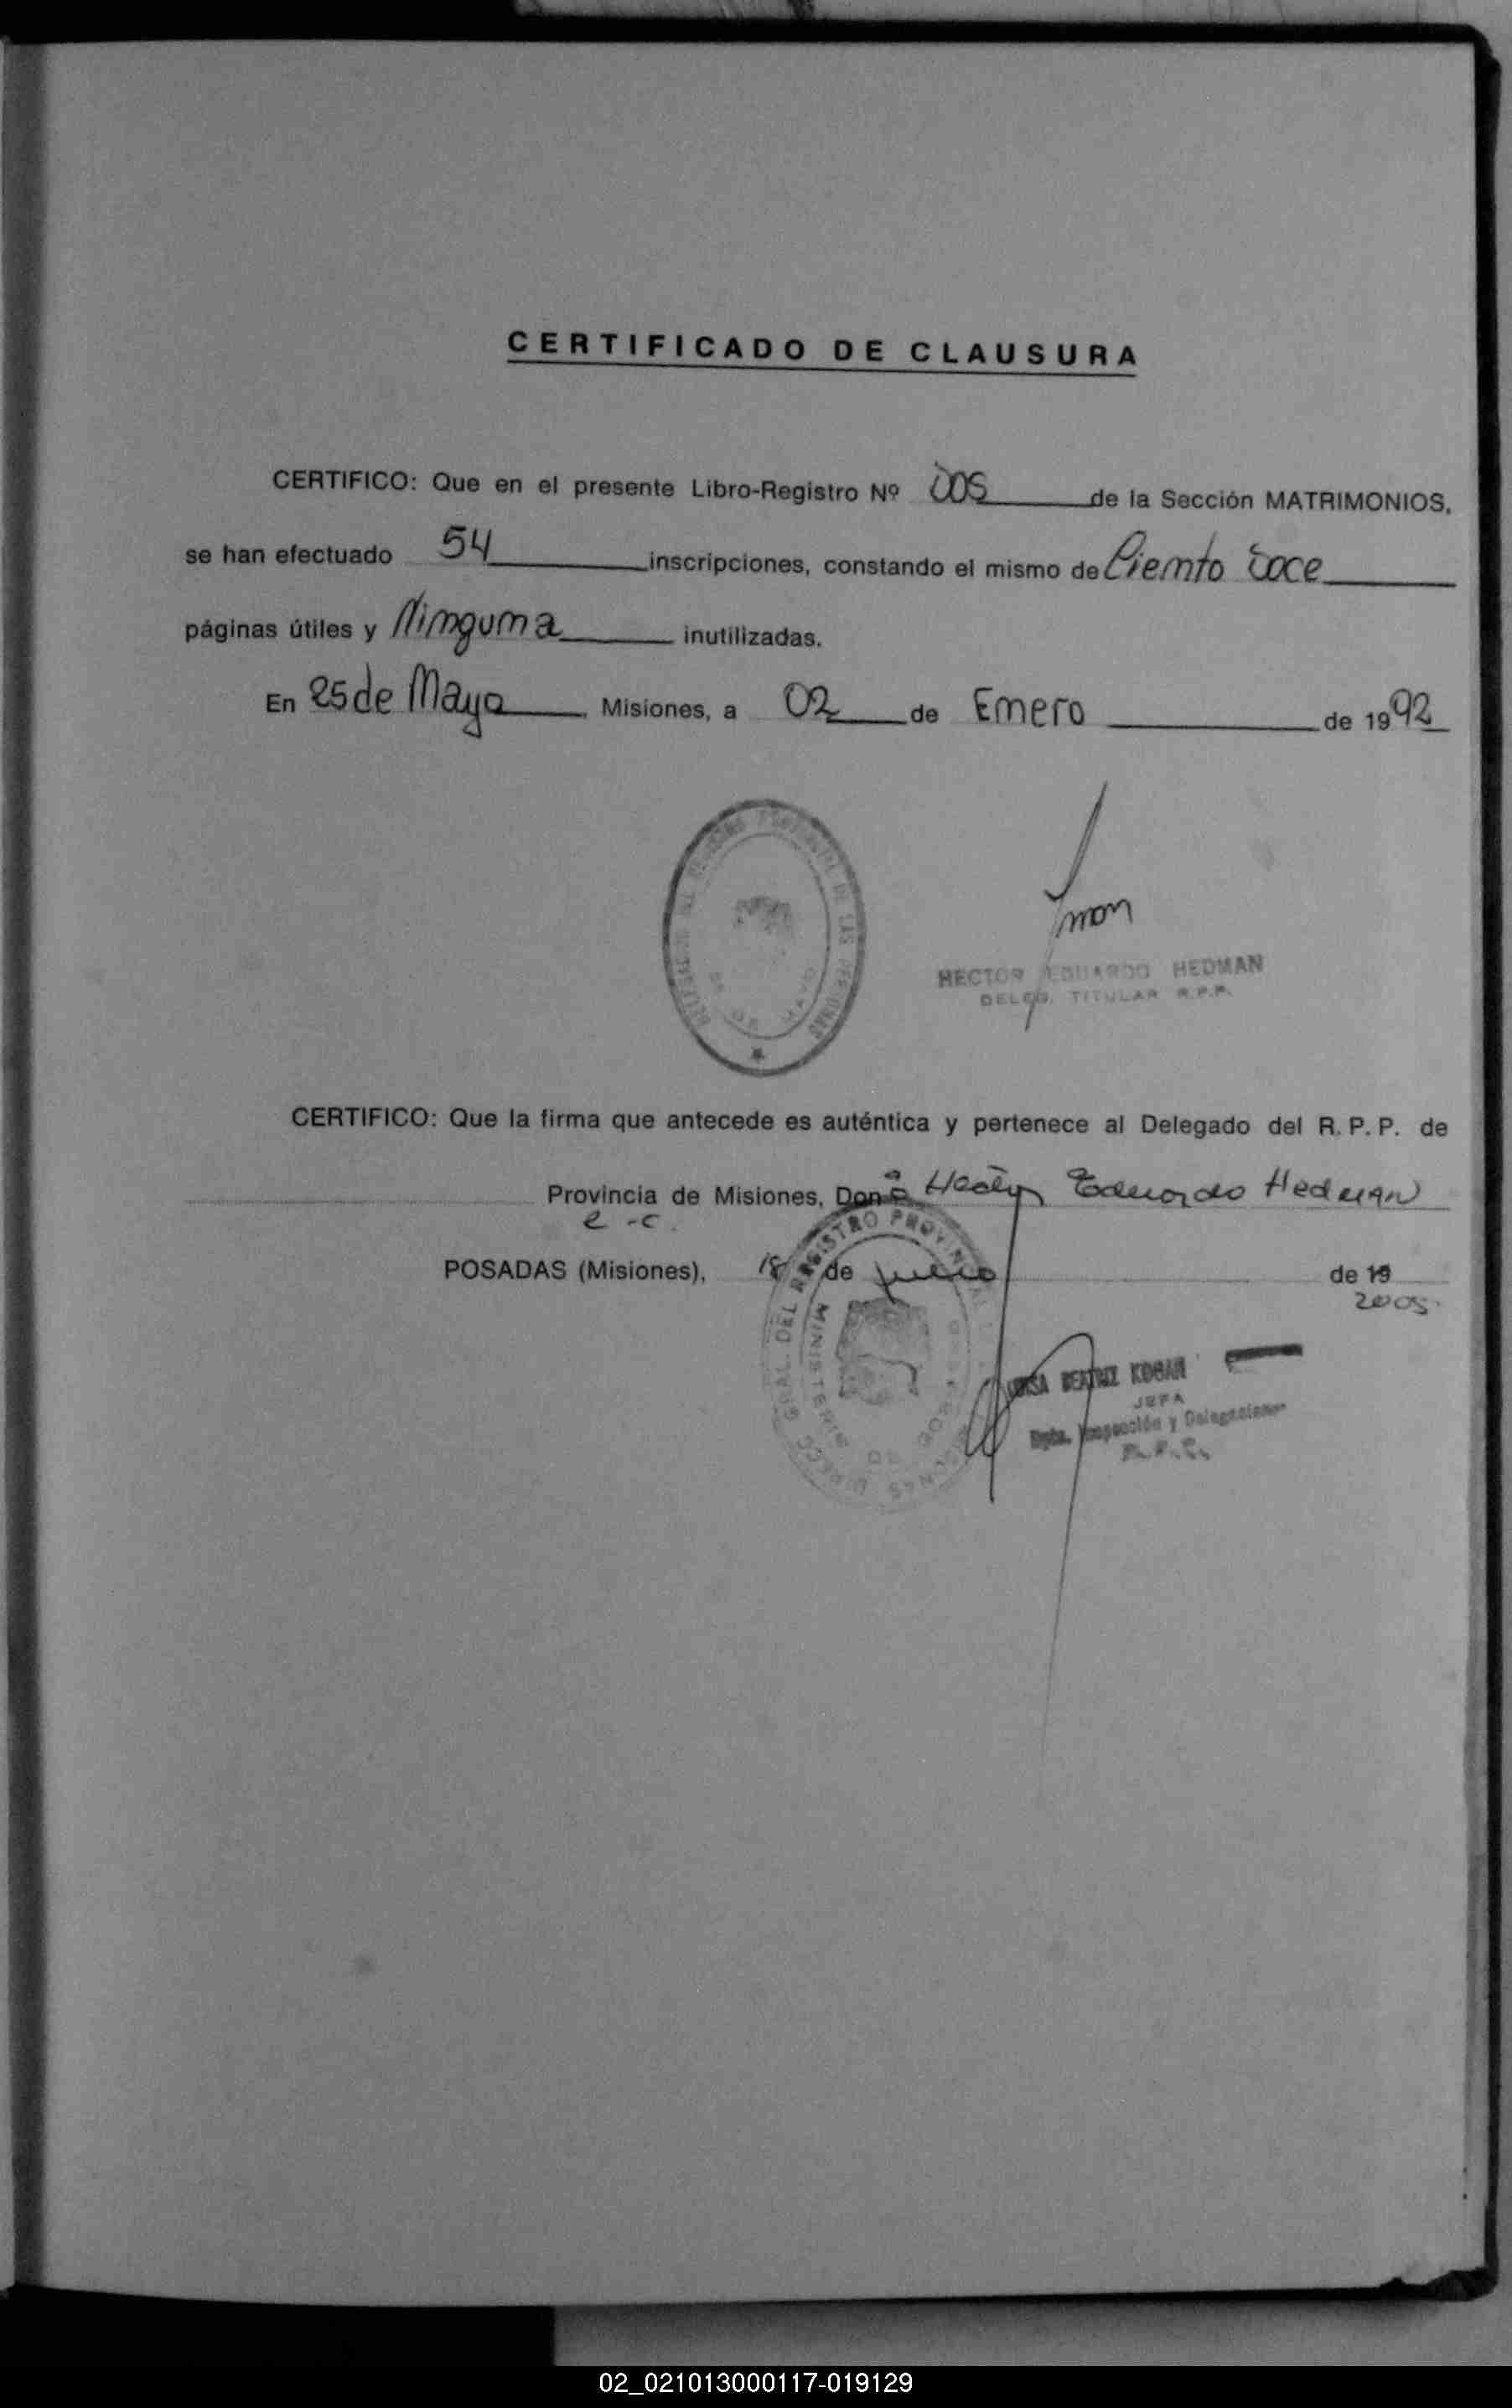 CERTIFICADO DE CLAUSURA
CERTIFICO: Que en el presente Libro-Registro Nº DOS de la Sección MATRIMONIOS,
se han efectuado 54 inscripciones, constando el mismo de Ciento Doce
páginas útiles y Ninguna inutilizadas.
En 25 de Mayo Misiones, a 02 de Enero de 1992
HECTOR EDUARDO HEDMAN
DELEG. TITULAR R.P.P.
CERTIFICO: Que la firma que antecede es auténtica y pertenece al Delegado del R. P. P. de
Provincia de Misiones, Don Hector Eduardo Hedman
POSADAS (Misiones), 18 de de 19
2005.
LUISA BEATRIZ KOGAN
JEFA
Dpto. Inspección y Delegaciones
02_021013000117-019129